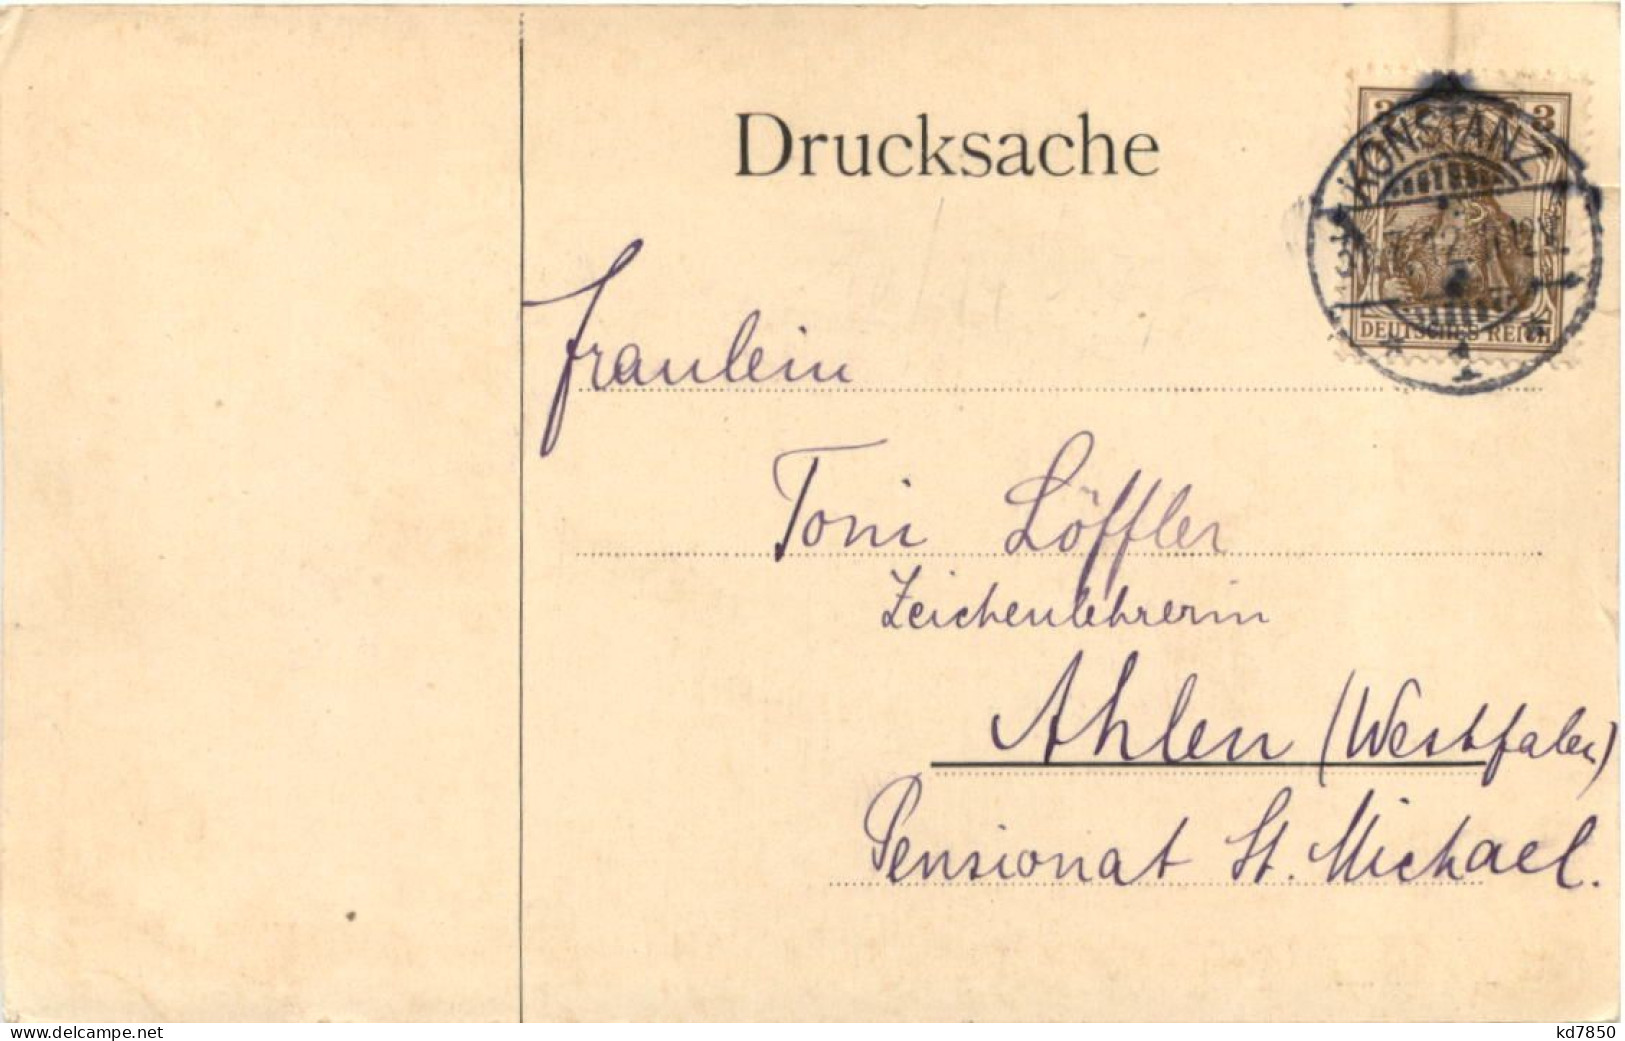 Drucksache
3 3
KONSTANZ
12
DEUTSCHES REICH
* 1 *
Fraulein
Toni Löffler
Zeichenlehrerin
Ahlen (Westfalen)
Pensionat St. Michael.
www.delcampe.net
kd7850